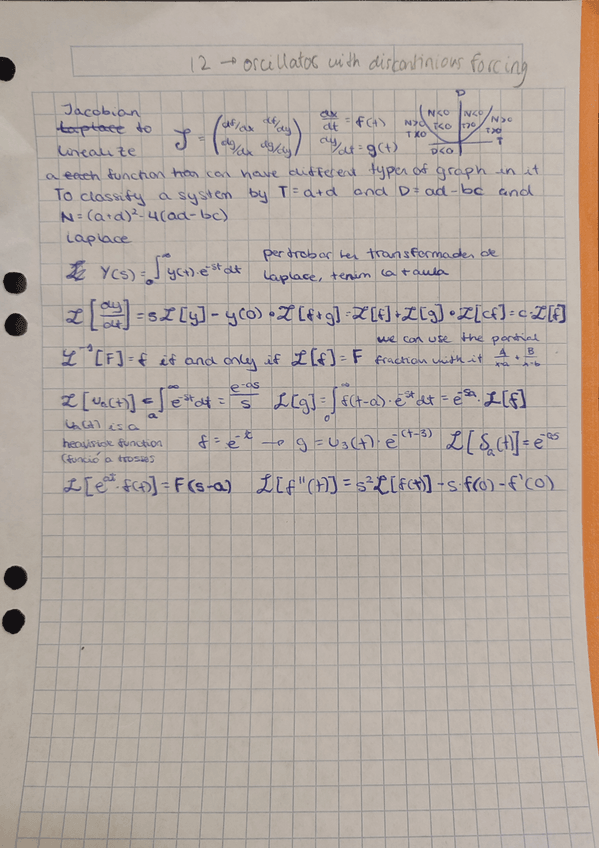 12 → oscillator with discontinious forcing
Jacobian
Laplace to
linearize
J = (df/dx df/dy dg/dx dg/dy)
dx/dt = f(t)
dy/dt = g(t)
D
N<0 N<0
N>0 T<0 T>0 N>0
T<0 T>0
D<0 T
a each function than can have different types of graph in it
To classify a system by T=a+d and D=ad-bc and
N=(a+d)²-4(ad-bc)
Laplace
Y(s)=∫₀^∞ y(t)·e^-st dt
per trobar les transformades de
Laplace, tenim la taula
ℒ[dy/dt]=sℒ[y]-y(0) • ℒ[f+g]=ℒ[f]+ℒ[g] • ℒ[cf]=c·ℒ[f]
we can use the partial
ℒ⁻¹[F]=f if and only if ℒ[f]=F fraction with it A/s-a + B/s-b
ℒ[ua(t)]=∫ₐ^∞ e^-st dt = e^-as/s ℒ[g]=∫₀^∞ f(t-a)·e^-st dt = e^-sa·ℒ[f]
ua(t) is a
heaviside function
(funció a trossos
f=e^-t → g=u₃(t)·e^-(t-3) ℒ[δa(t)]=e^-as
ℒ[e^at·f(t)]=F(s-a) ℒ[f''(t)]=s²ℒ[f(t)]-s·f(0)-f'(0)